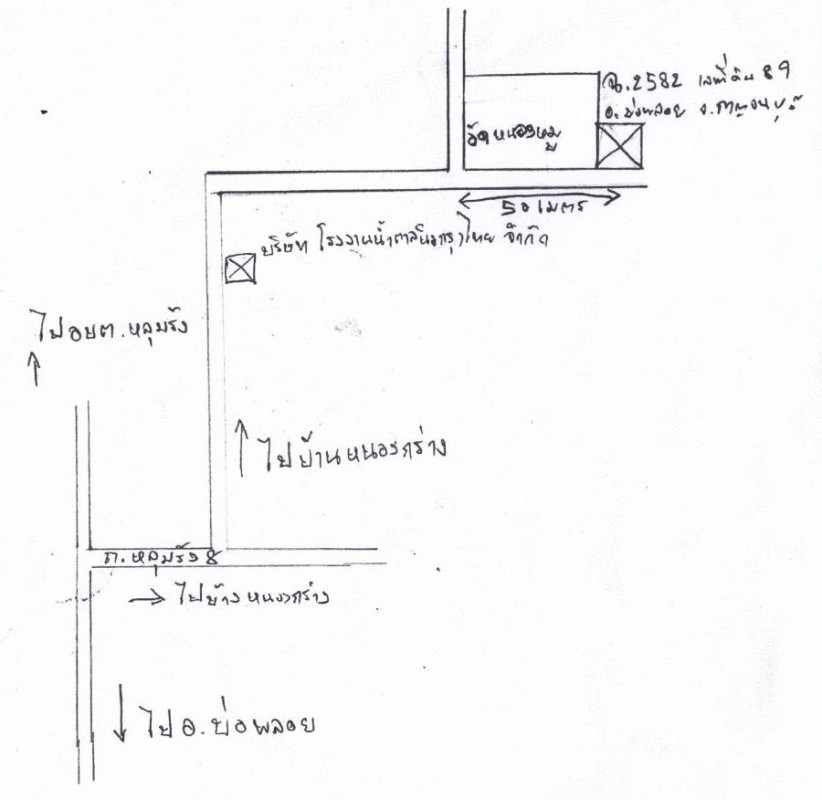 ฉ.2582 เลขที่ดิน 89
อ.บ่อพลอย จ.กาญจนบุรี
วัดหนองหมู
50 เมตร
บริษัท โรงงานน้ำตาลนิวกรุงไทย จำกัด
ไปอบต.หลุมรัง
ไปบ้านหนองกร่าง
ถ.หลุมรัง 8
ไปบ้านหนองกร่าง
ไปอ.บ่อพลอย